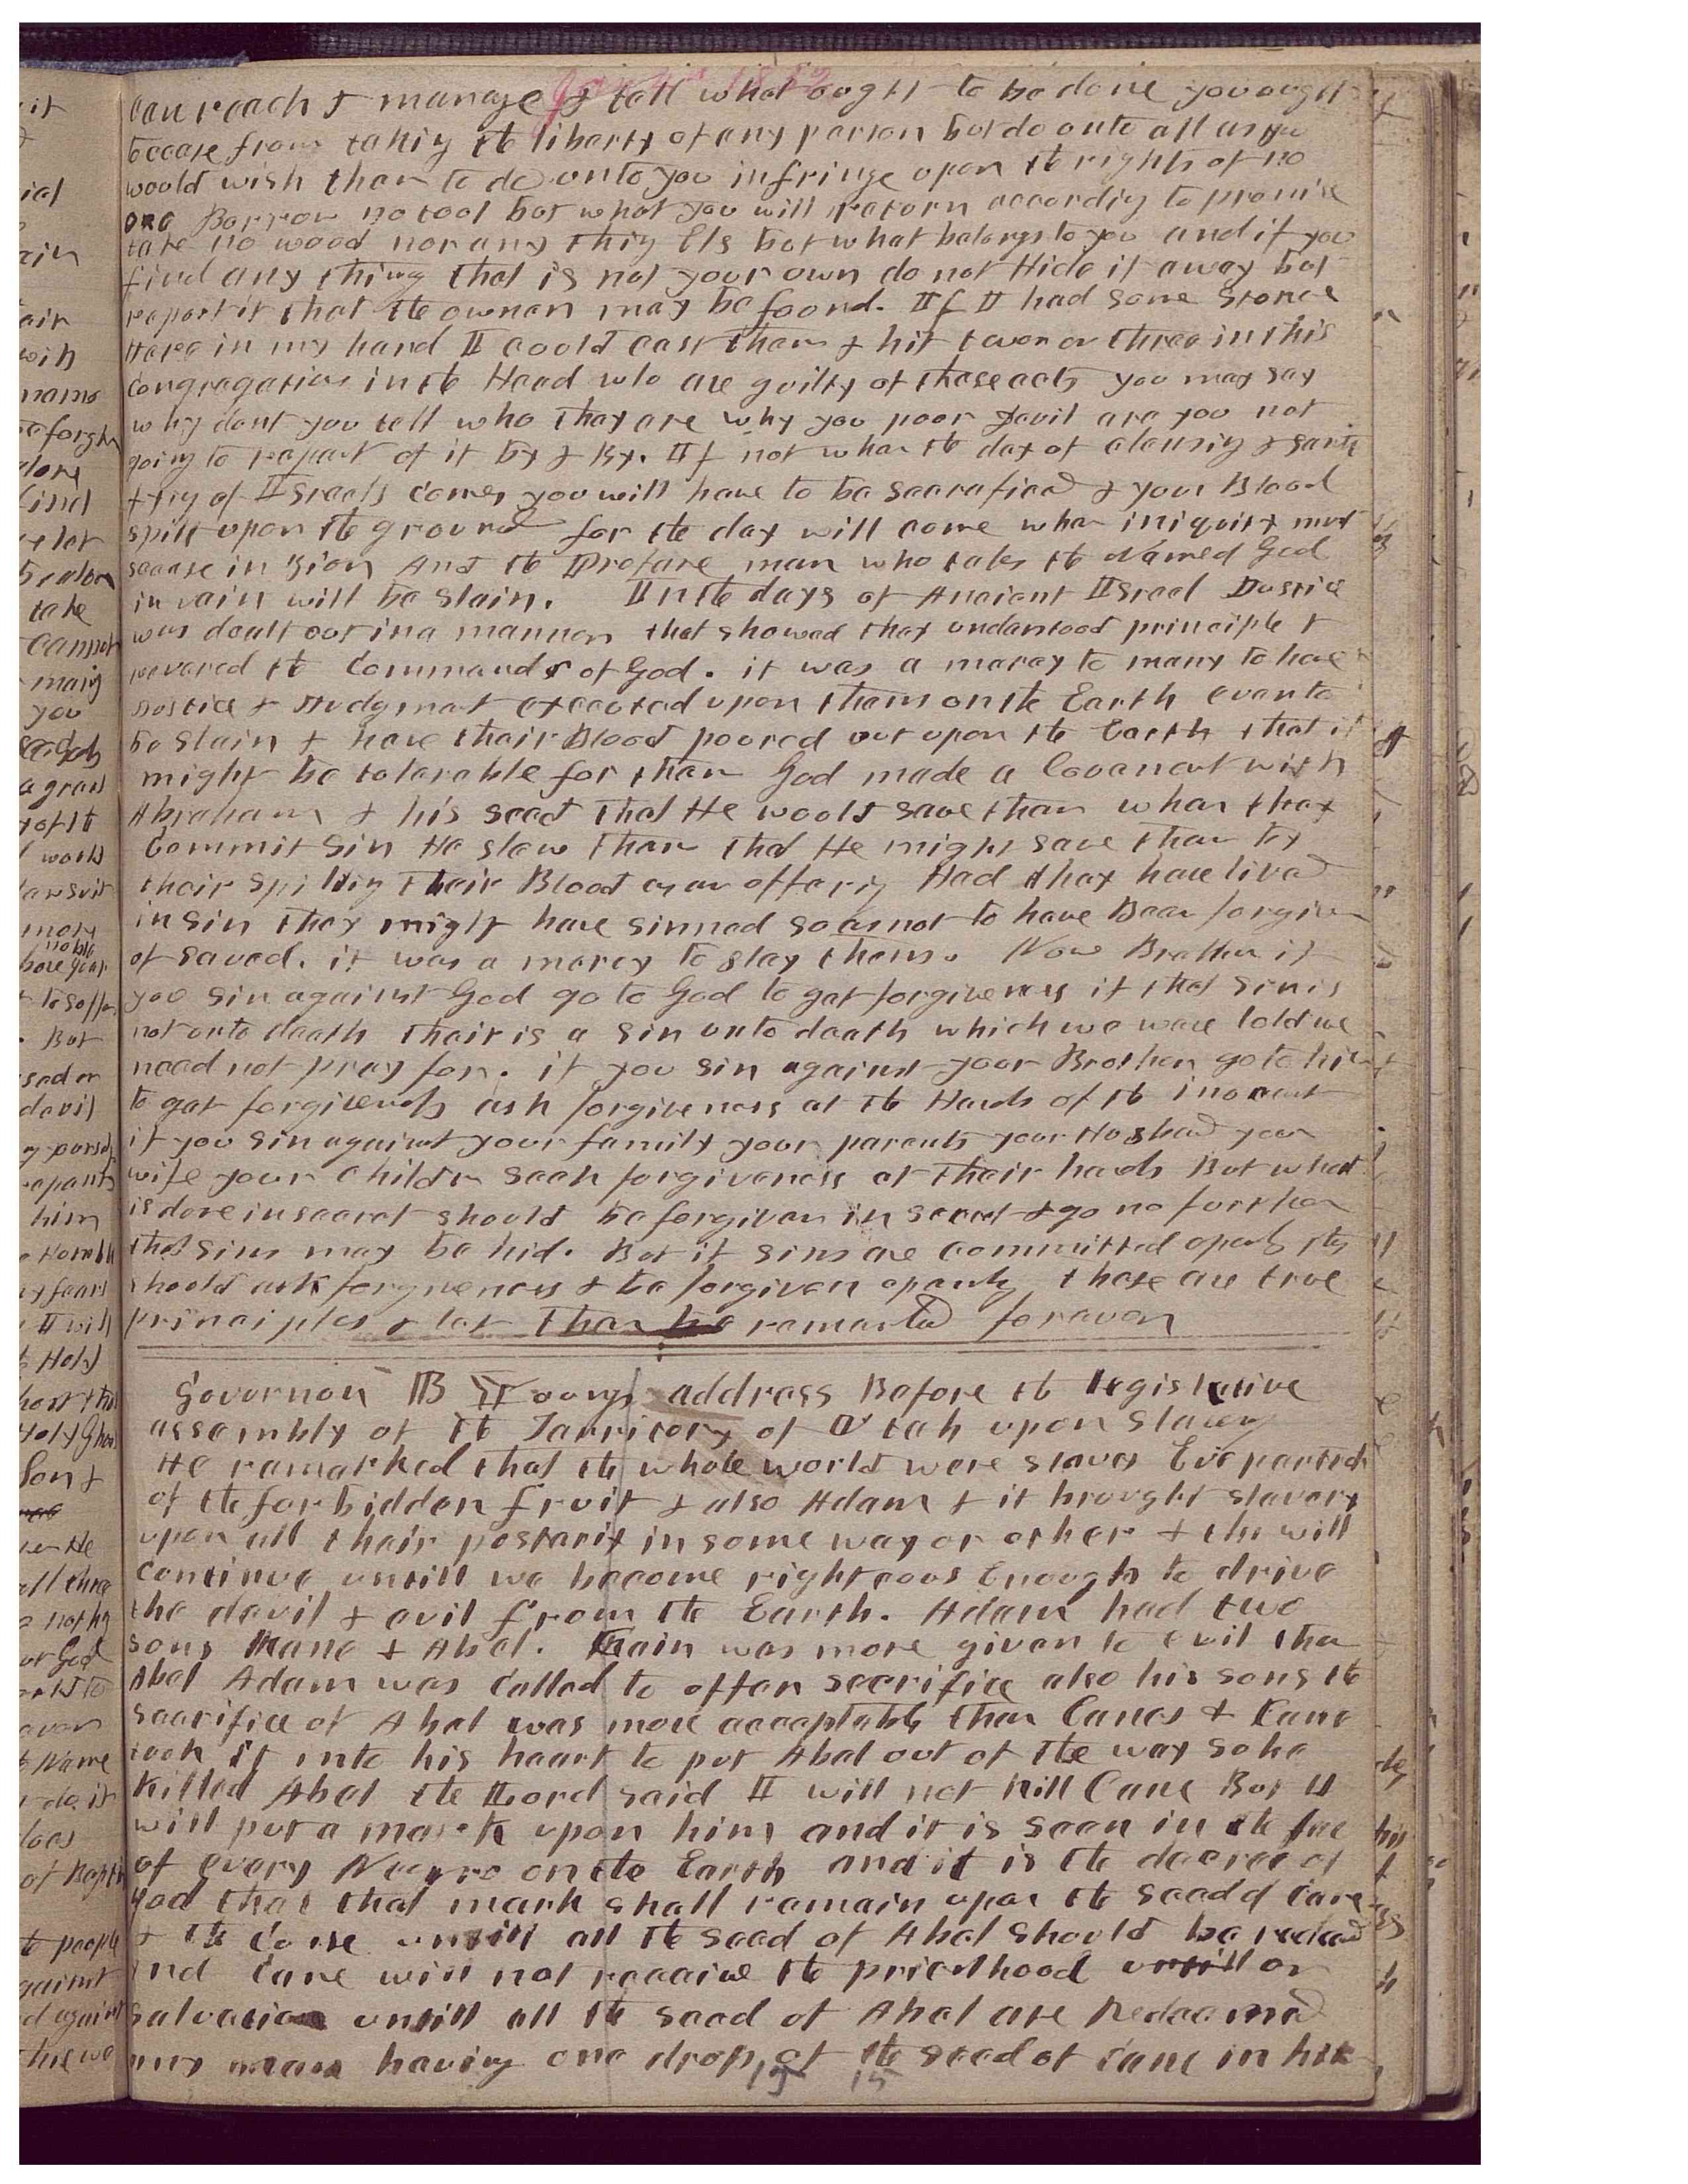 can reach & manage & tell what ought to be done you ought
to cease from taking the liberty of any person but do unto all as you
would wish them to do unto you infringe upon the rights of no
one Borrow no tool but what you will return according to promise
take no wood nor any thing Els but what belongs to you and if you
find any thing that is not your own do not Hide it away but
report it that the owner may be found. If I had some stones
Here in my hand I could cast them & hit two or three in this
congregation in the Head who are guilty of these acts you may say
why dont you tell who they are why you poor devil are you not
going to repent of it by & By. If not when the day of clensing & sanc
tfy of Israels comes you will have to be sacrafised & your Blood
spilt upon the ground for the day will come when iniquity must
sease in Zion And the Profane man who takes the Name of God
in vain will be slain. In the days of Ancient Israel Justice
was dealt out in a manner that showed they understood principle &
revered the Commands of God. it was a mercy to many to have
Justice & Judgment executed upon them on the Earth even to
be slain & have their Blood poured out upon the Earth that it
might be tolerable for them God made a Covenant with
Abraham & his seed that He would save them when they
Commit Sin He slew them that He might save them by
their spilling their Blood as an offering Had they have lived
in sin they might have sinned so as not to have Been forgiven
of saved. it was a mercy to slay them. Now Brethren if
you sin against God go to God to get forgiveness if that sin is
not unto death their is a sin unto death which we ware told we
need not pray for. if you sin against your Brother go to him
to get forgiveness ask forgiveness at the Hands of the inocent
if you sin against your family your parents your Husband your
wife your Children seek forgiveness at their hands But what
is done in secret should be forgiven in secret & go no further
that sins may be hid. But if sins are committed openly they
should ask forgiveness & be forgiven openly these are true
principles & let them be remembered forever
Governor B Youngs address Before the legislative
assembly of the Territory of Utah upon slavery
He remarked that the whole world were slaves Eve partook
of the forbidden fruit & also Adam & it brought slavery
upon all their posterity in some way or other & this will
continue untill we become righteous Enough to drive
the devil & evil from the Earth. Adam had two
sons Kane & Abel. Cain was more given to evil than
Abel Adam was Called to offer sacrifice also his sons the
sacrifice of Abel was more acceptable than Canes & Cane
took it into his heart to put Abel out of the way so he
killed Abel the Lord said I will not kill Cane But I
will put a mark upon him and it is seen in the face
of every Negro on the Earth and it is the decree of
God that that mark shall remain upon the seed of Cane
& the Curse untill all the seed of Abel should be redeemed
and Cane will not receive the priesthood untill or
salvation untill all the seed of Abel are Redeemed
any man having one drop of the seed of Cane in him